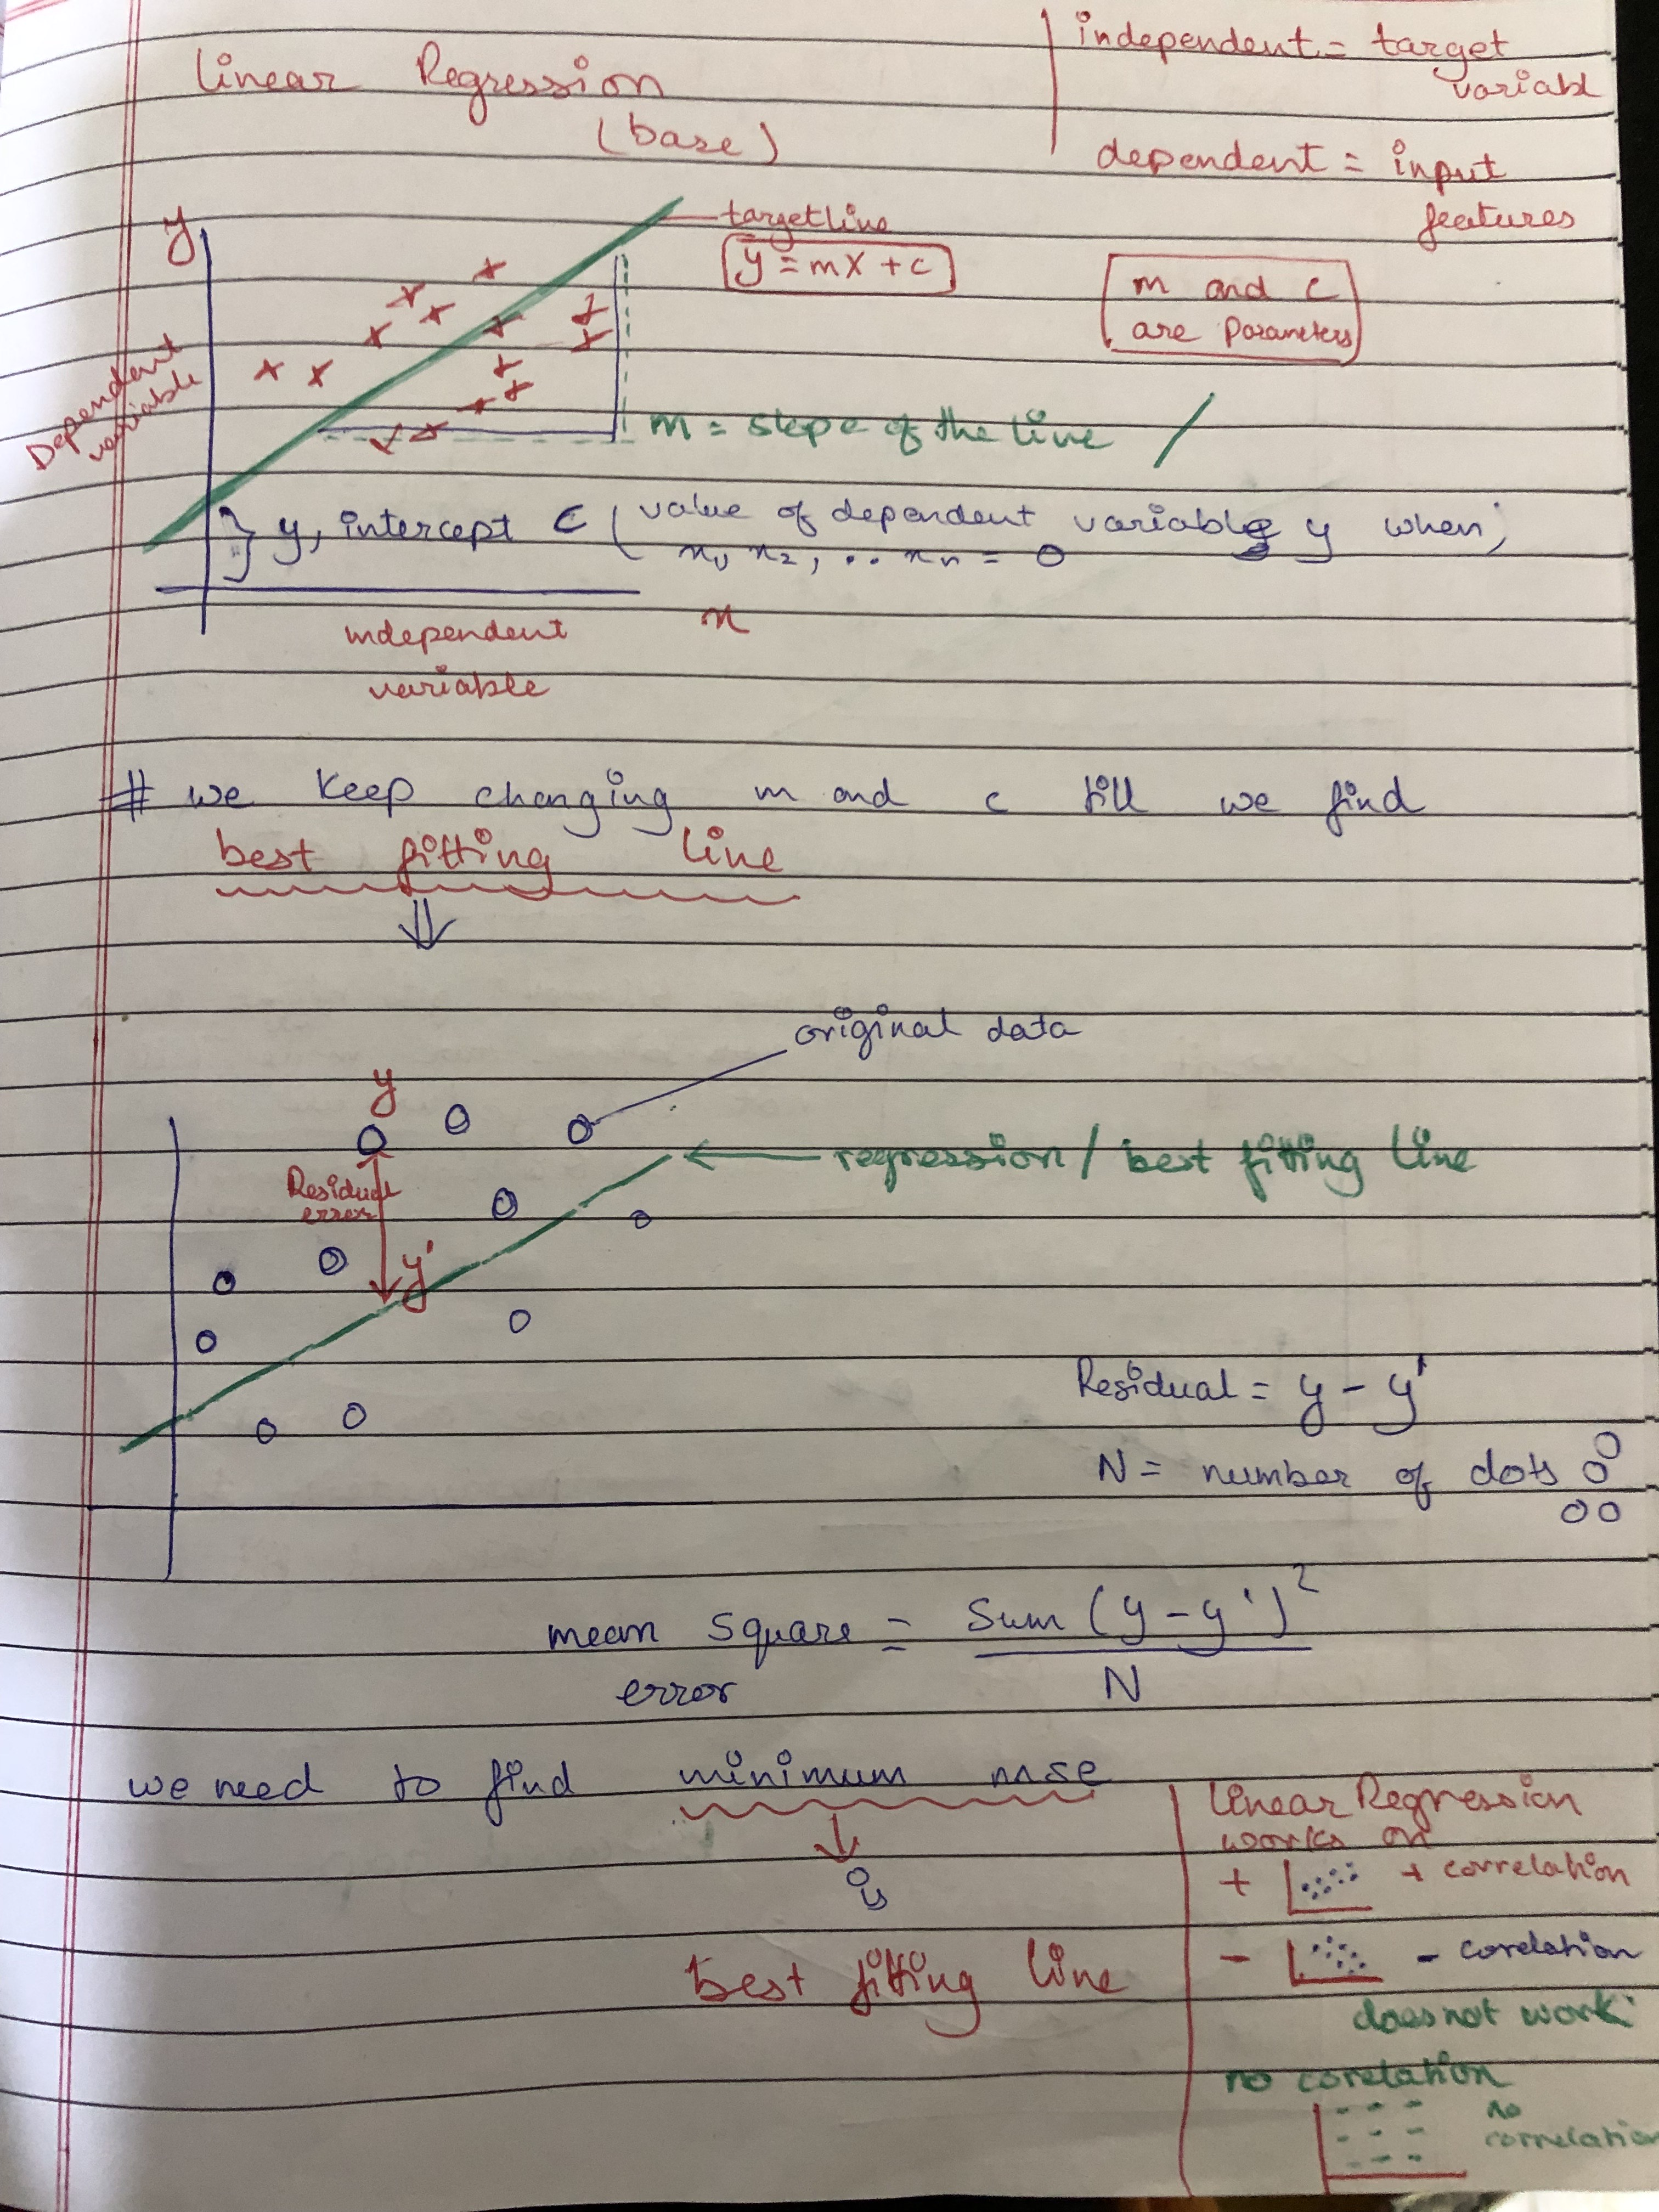 linear Regression
(base)
independent = target
variabl
dependent = input
features
y
targetline
y = mx + c
m and c
are Parameters
Dependent
variable
m = slope of the line /
} y, intercept c ( value of dependent variable y when )
x1, x2, .. xn = 0
independent
variable
x
# we keep changing m and c till we find
best fitting line
⇓
original data
y
regression / best fitting line
Residual
error
y'
Residual = y - y'
N = number of dots
mean square = Sum (y - y')²
error
N
we need to find minimum mse
↓
is
best fitting line
linear Regression
works on
+ + correlation
- - corelation
does not work
no corelation
no
correlation